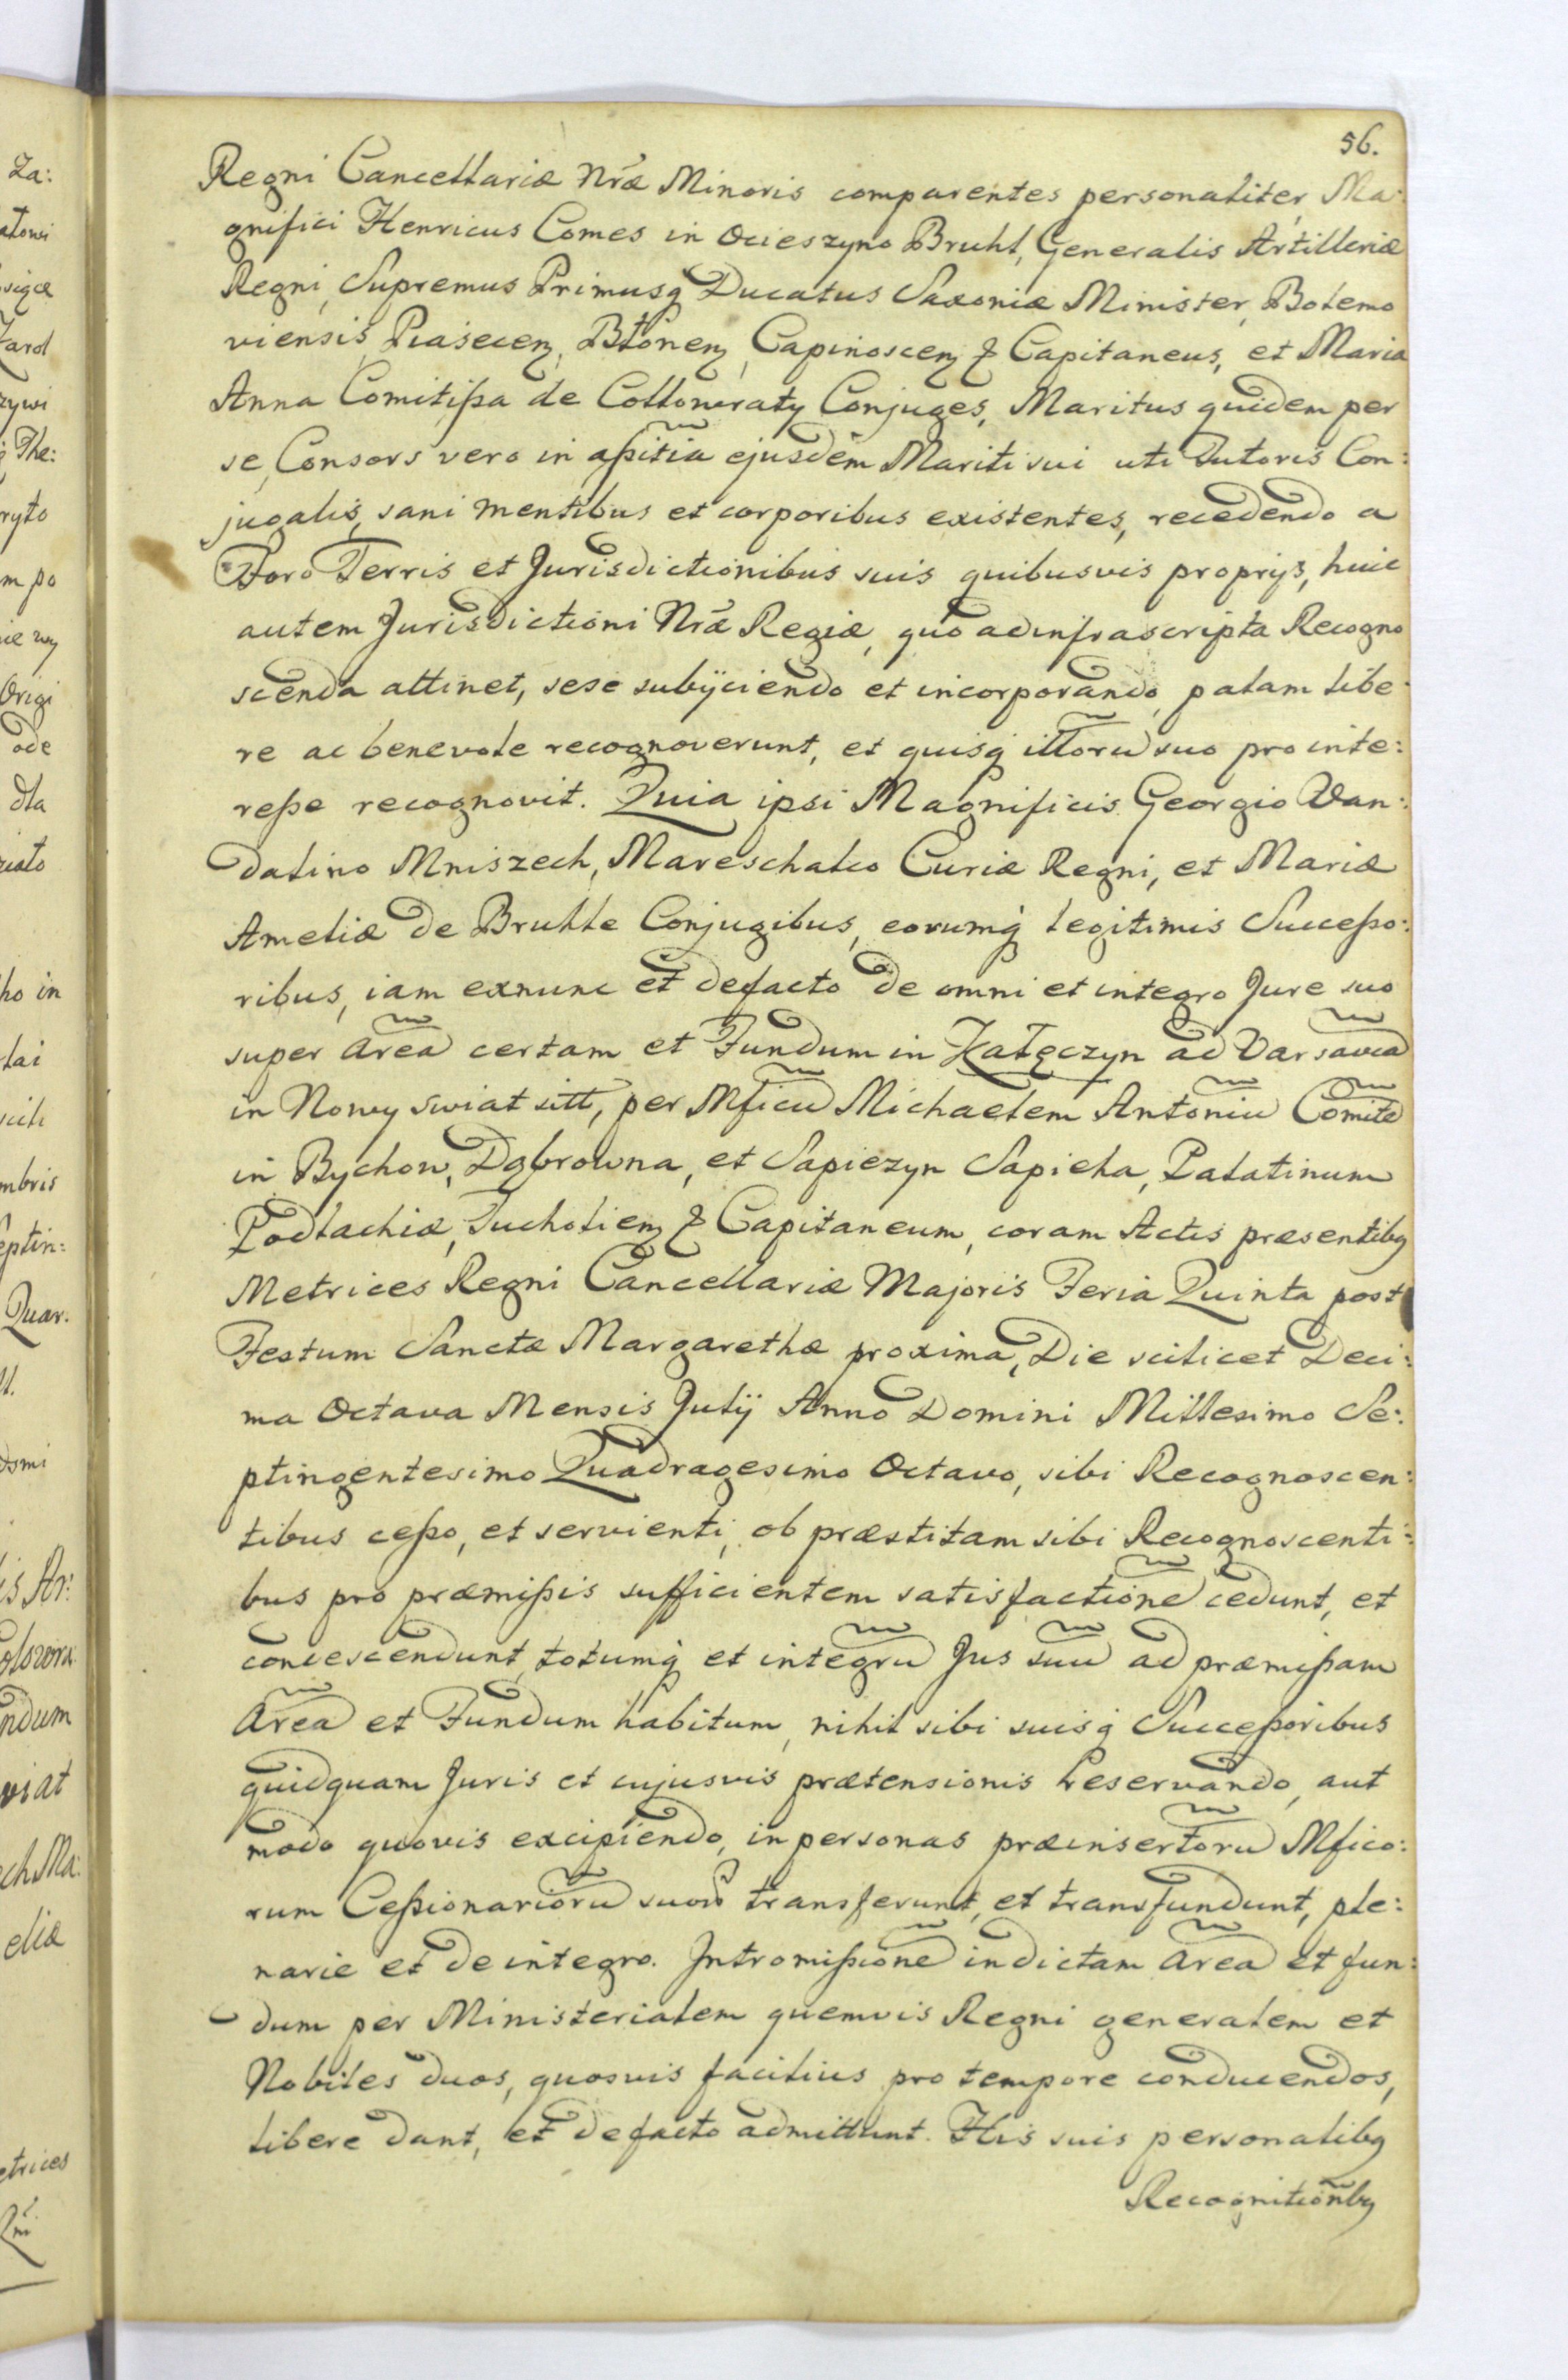 56.
Regni Cancellariæ Nrã Minoris comparentes personaliter, Ma:
gnifici Henricus Comes in Ocieszyno Bruhl, Generalis Artilleriæ
Regni, Supremus Primusq Ducatus Saxoniæ Minister, Bolemo
viensis, Piasecen, Błonen, Capinoscen & Capitaneus, et Maria
Anna Comitißa de Collowraty Conjuges, Maritus quidem per
se, Consors vero in aßitia ejusdem Mariti sui uti Tutoris Con:
jugalis, sani mentibus et corporibus existentes, recedendo a
Foro Terris et Jurisdictionibus suis quibusvis proprijs, huic
autem Jurisdictioni Nrã Regiæ, quo ad infrascripta Recogno
scenda attinet, sese subijciendo et incorporando, palam libe:
re ac benevole recognoverunt, et quisq illorũ suo pro inte:
reße recognovit. Quia ipsi Magnificis Georgio Van:
dalino Mniszech, Mareschalco Curiæ Regni, et Mariæ
Ameliæ de Bruhle Conjugibus, eorumq legitimis Succeßo:
ribus, iam exnunc et defacto de omni et integro Jure suo
super Areã certam et Fundum in Kałęczyn ad Varsaviã
in Nowy swiat sitt, per Mficũ Michaelem Antoniũ Comitẽ
in Bychow, Dąbrowna, et Sapiezyn Sapieha, Palatinum
Podlachiæ, Tucholien & Capitaneum, coram Actis præsentibq
Metrices Regni Cancellariæ Majoris Feria Quinta post
Festum Sanctæ Margarethæ proxima, Die scilicet Deci:
ma Octava Mensis Julij Anno Domini Millesimo Se:
ptingentesimo Quadragesimo Octavo, sibi Recognoscen:
tibus ceßo, et servienti, ob præstitam sibi Recognoscenti:
bus pro præmißis sufficientem satisfactionẽ cedunt, et
condescendunt, totumq et integrũ Jus suũ ad præmißam
Areã et Fundum habitum, nihil sibi suisq Succeßoribus
quidquam Juris et cujusvis prætensionis reservando, aut
modo quovis excipiendo, in personas præinsertorũ Mfico:
rum Ceßionariorũ suorũ transferunt, et transfundunt, ple:
narie et de integro. Intromißionẽ in dictam Areã et fun:
dum per Ministerialem quemvis Regni generalem et
Nobiles duos, quosvis facilius pro tempore conducendos,
libere dant, et de facto admittunt. His suis personalibq
Recognitionibq